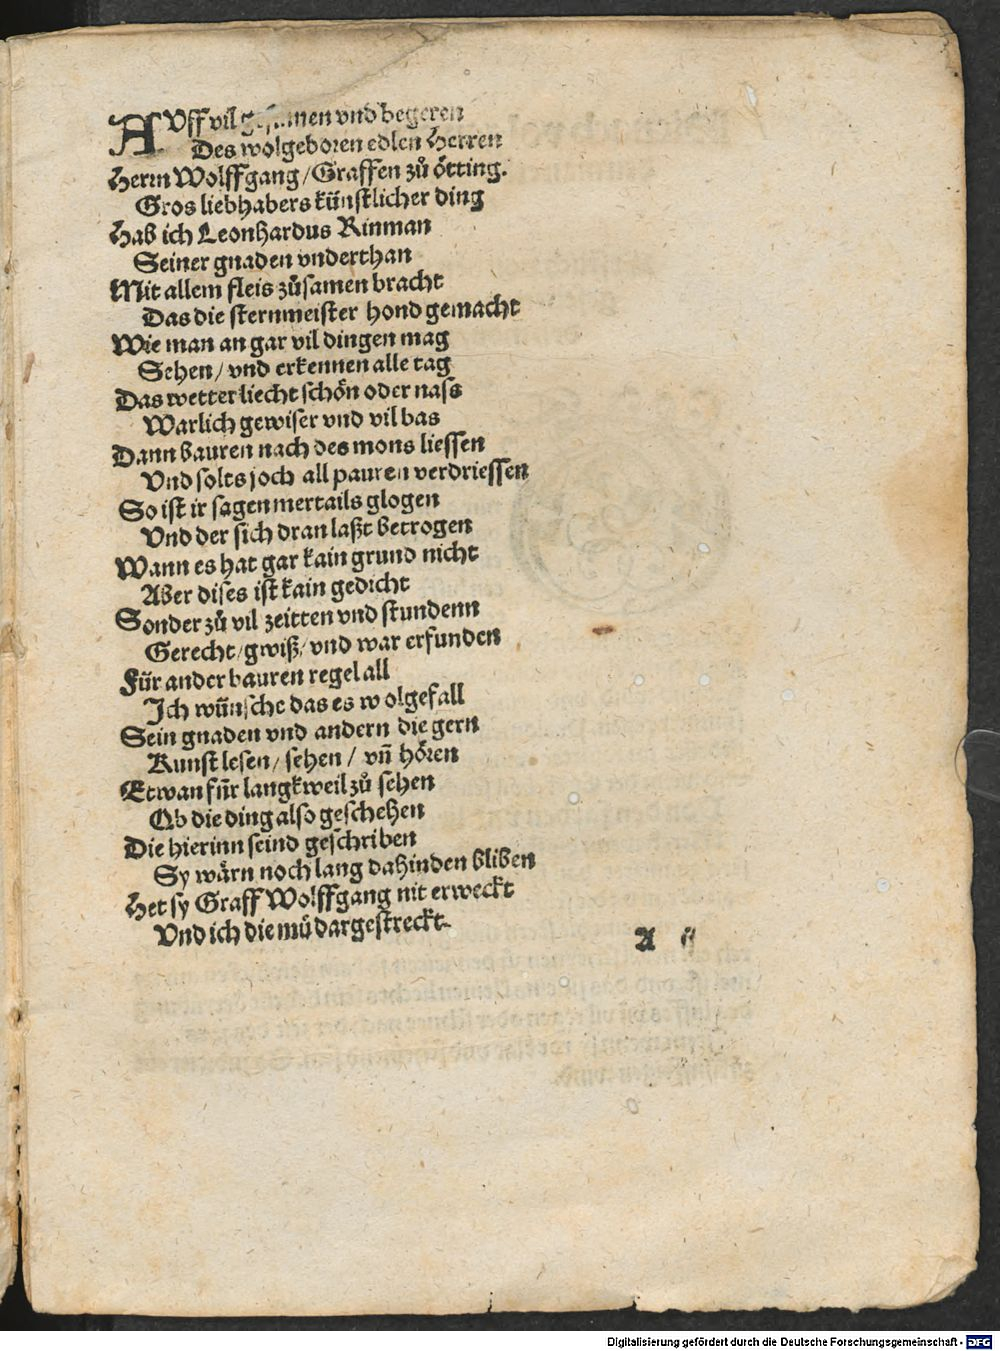 AUff vil gesinnen vnd begeren
Des wolgeboren edlen Herren
Herrn Wolffgang / Graffen zů ötting.
Gros liebhabers künstlicher ding
Hab ich Leonhardus Rinman
Seiner gnaden vnderthan
Mit allem fleis zůsamen bracht
Das die sternmeister hond gemacht
Wie man an gar vil dingen mag
Sehen / vnd erkennen alle tag
Das wetter liecht schön oder nass
Warlich gewiser vnd vil bas
Dann bauren nach des mons liessen
Vnd solts joch all pauren verdriessen
So ist ir sagen mertails glogen
Vnd der sich dran laßt betrogen
Wann es hat gar kain grund nicht
Aber dises ist kain gedicht
Sonder zů vil zeitten vnd stundenn
Gerecht / gwiß / vnd war erfunden
Für ander bauren regel all
Ich wünsche das es wolgefall
Sein gnaden vnd andern die gern
Kunst lesen / sehen / vñ hören
Etwan für langkweil zů sehen
Ob die ding also geschehen
Die hierinn seind geschriben
Sy wärn noch lang dahinden bliben
Het sy Graff Wolffgang nit erweckt
Vnd ich die mü dargestreckt.
A ij
Digitalisierung gefördert durch die Deutsche Forschungsgemeinschaft - DFG